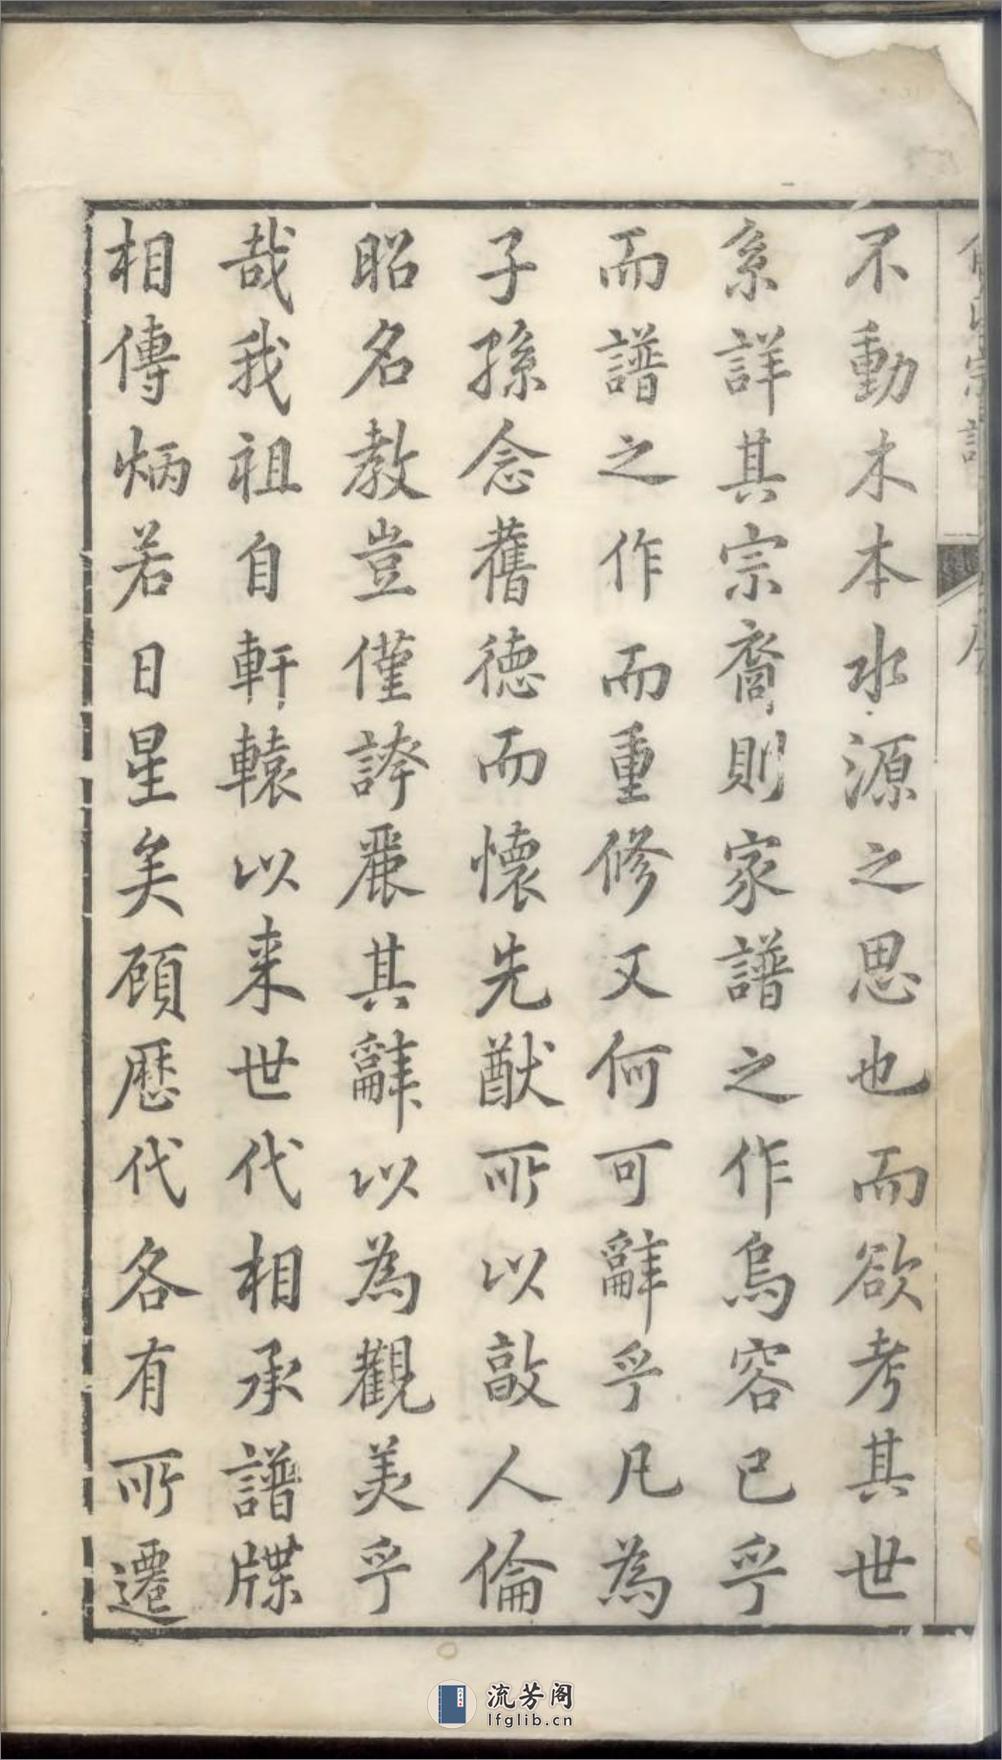 不動木本水源之思也而欲考其世
系詳其宗裔則家譜之作烏容已乎
而譜之作而重修又何可辭乎凡為
子孫念舊德而懷先猷所以敦人倫
昭名教豈僅誇麗其辭以為觀美乎
哉我祖自軒轅以来世代相承譜牒
相傳炳若日星矣顧歷代各有所遷
流芳阁
lfglib.cn